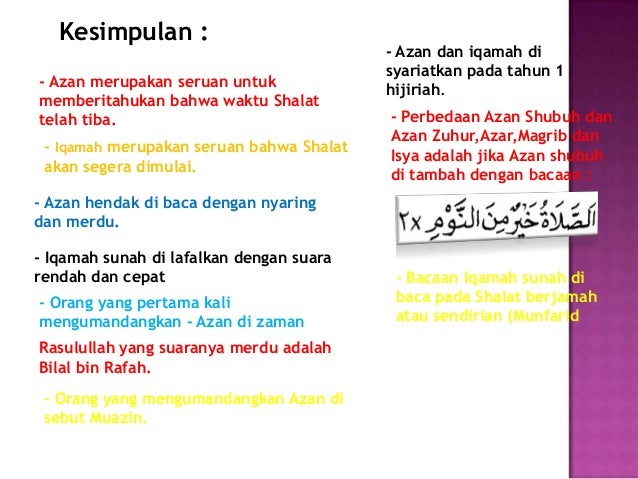 Kesimpulan :
- Azan merupakan seruan untuk
memberitahukan bahwa waktu Shalat
telah tiba.
- Iqamah merupakan seruan bahwa Shalat
akan segera dimulai.
- Azan hendak di baca dengan nyaring
dan merdu.
- Iqamah sunah di lafalkan dengan suara
rendah dan cepat
- Orang yang pertama kali
mengumandangkan - Azan di zaman
Rasulullah yang suaranya merdu adalah
Bilal bin Rafah.
- Orang yang mengumandangkan Azan di
sebut Muazin.
- Azan dan iqamah di
syariatkan pada tahun 1
hijiriah.
- Perbedaan Azan Shubuh dan
Azan Zuhur,Azar,Magrib dan
Isya adalah jika Azan shubuh
di tambah dengan bacaan :
اَلصَّلَاةُ خَيْرٌ مِنَ النَّوْمِ ٢x
- Bacaan Iqamah sunah di
baca pada Shalat berjamah
atau sendirian (Munfarid